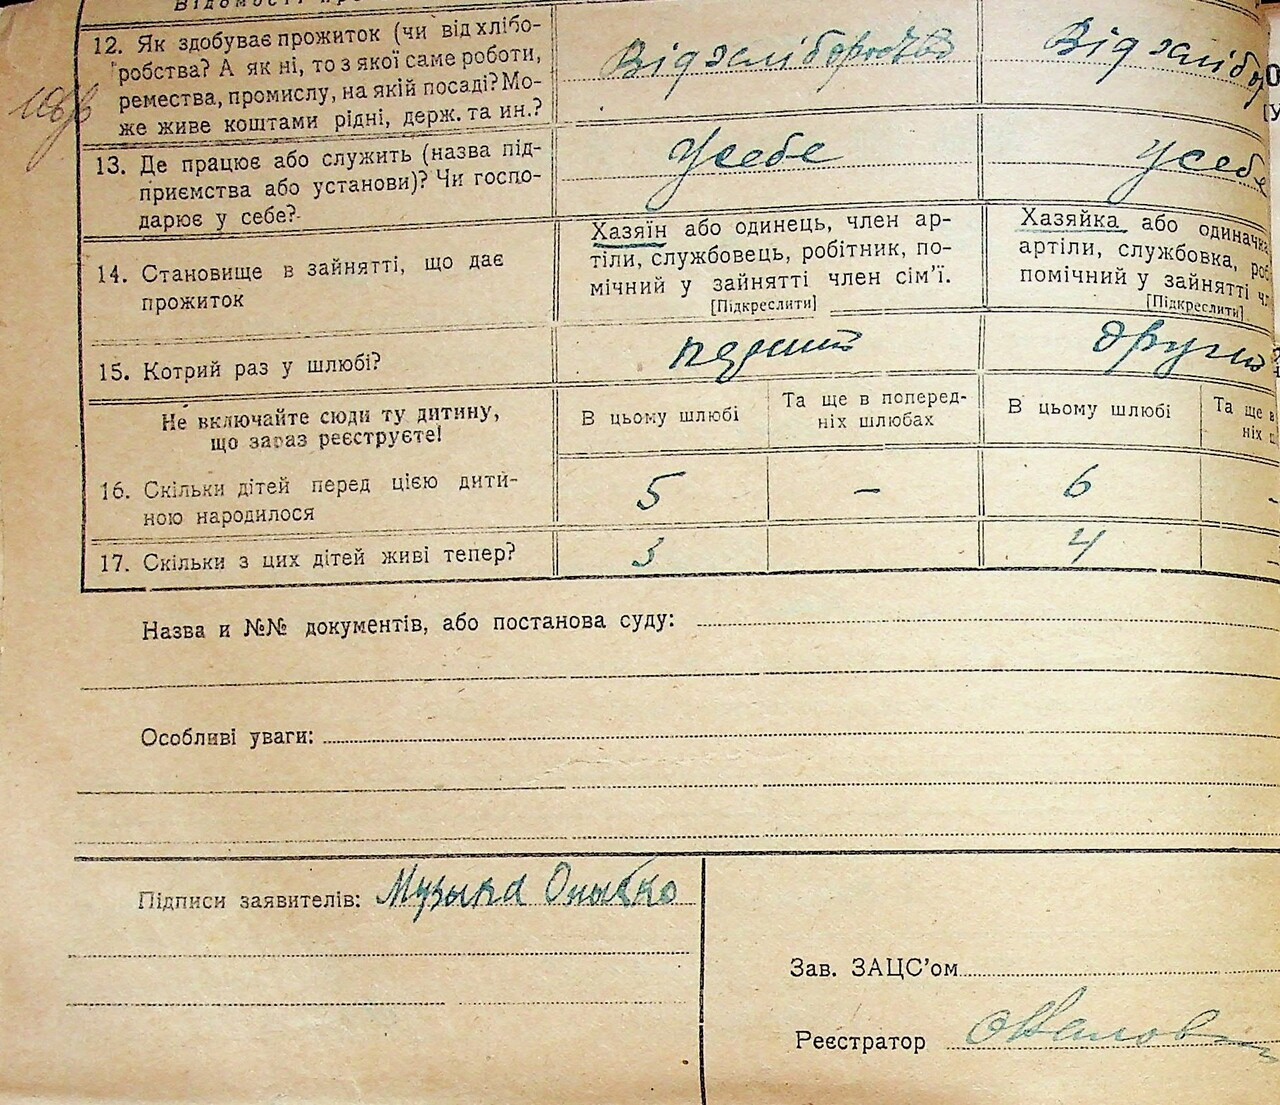 12. Як здобуває прожиток (чи від хлібо-
робства? А як ні, то з якої саме роботи,
ремества, промислу, на якій посаді? Мо-
же живе коштами рідні, держ. та ин.?
Від хліборобства
Від хлібо
13. Де працює або служить (назва під-
приємства або установи)? Чи госпо-
дарює у себе?
У себе
У себе
14. Становище в зайнятті, що дає
прожиток
Хазяїн або одинець, член ар-
тіли, службовець, робітник, по-
мічний у зайнятті член сім'ї.
[Підкреслити]
Хазяйка або одиначка
артіли, службовка, роб
помічний у зайнятті чл
[Підкреслити]
15. Котрий раз у шлюбі?
перший
другий
Не включайте сюди ту дитину,
що зараз реєструєте!
В цьому шлюбі
Та ще в поперед-
ніх шлюбах
В цьому шлюбі
Та ще в
ніх
16. Скільки дітей перед цією дити-
ною народилося
5
–
6
–
17. Скільки з цих дітей живі тепер?
3
4
–
Назва и №№ документів, або постанова суду:
Особливі уваги:
Підписи заявителів: Музыка
Зав. ЗАЦС'ом
Реєстратор